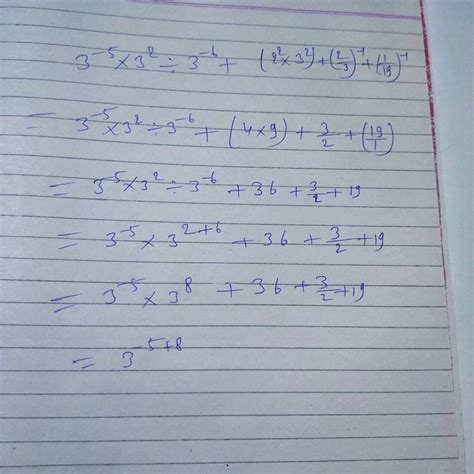 3⁻⁵ × 3² ÷ 3⁻⁶ + (2² × 3²) + (2/3)⁻¹ + (1/19)⁻¹
= 3⁻⁵ × 3² ÷ 3⁻⁶ + (4 × 9) + 3/2 + (19/1)
= 3⁻⁵ × 3² ÷ 3⁻⁶ + 36 + 3/2 + 19
= 3⁻⁵ × 3²⁺⁶ + 36 + 3/2 + 19
= 3⁻⁵ × 3⁸ + 36 + 3/2 + 19
= 3⁻⁵⁺⁸